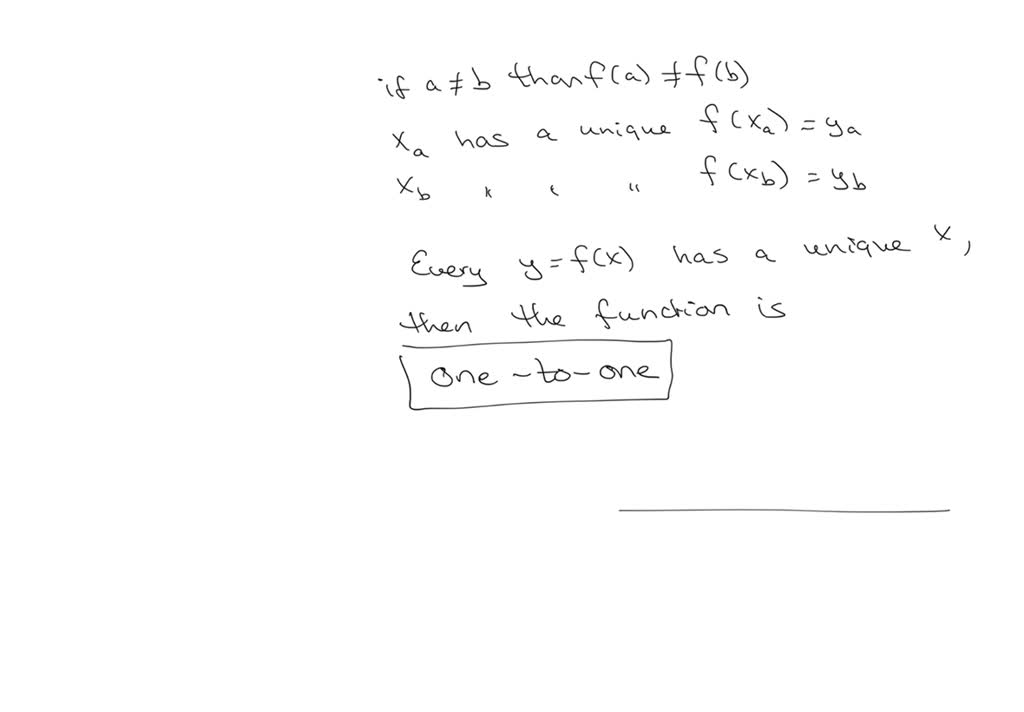 if a ≠ b than f(a) ≠ f(b)
xₐ has a unique f(xₐ) = yₐ
x_b " " " f(x_b) = y_b
Every y = f(x) has a unique x,
then the function is
one-to-one